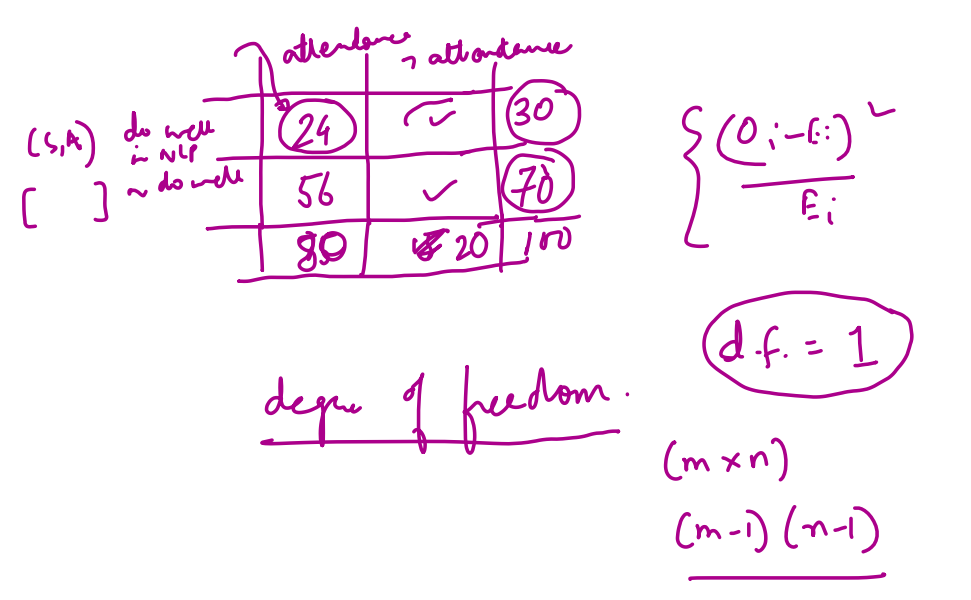 attendance ¬ attendance
(S,A) do well in NLP 24 ✓ 30
[ ] ~ do well 56 ✓ 70
80 20 100
{ (Oi - Ei)²
Ei
d.f. = 1
degree of freedom.
(m × n)
(m-1) (n-1)